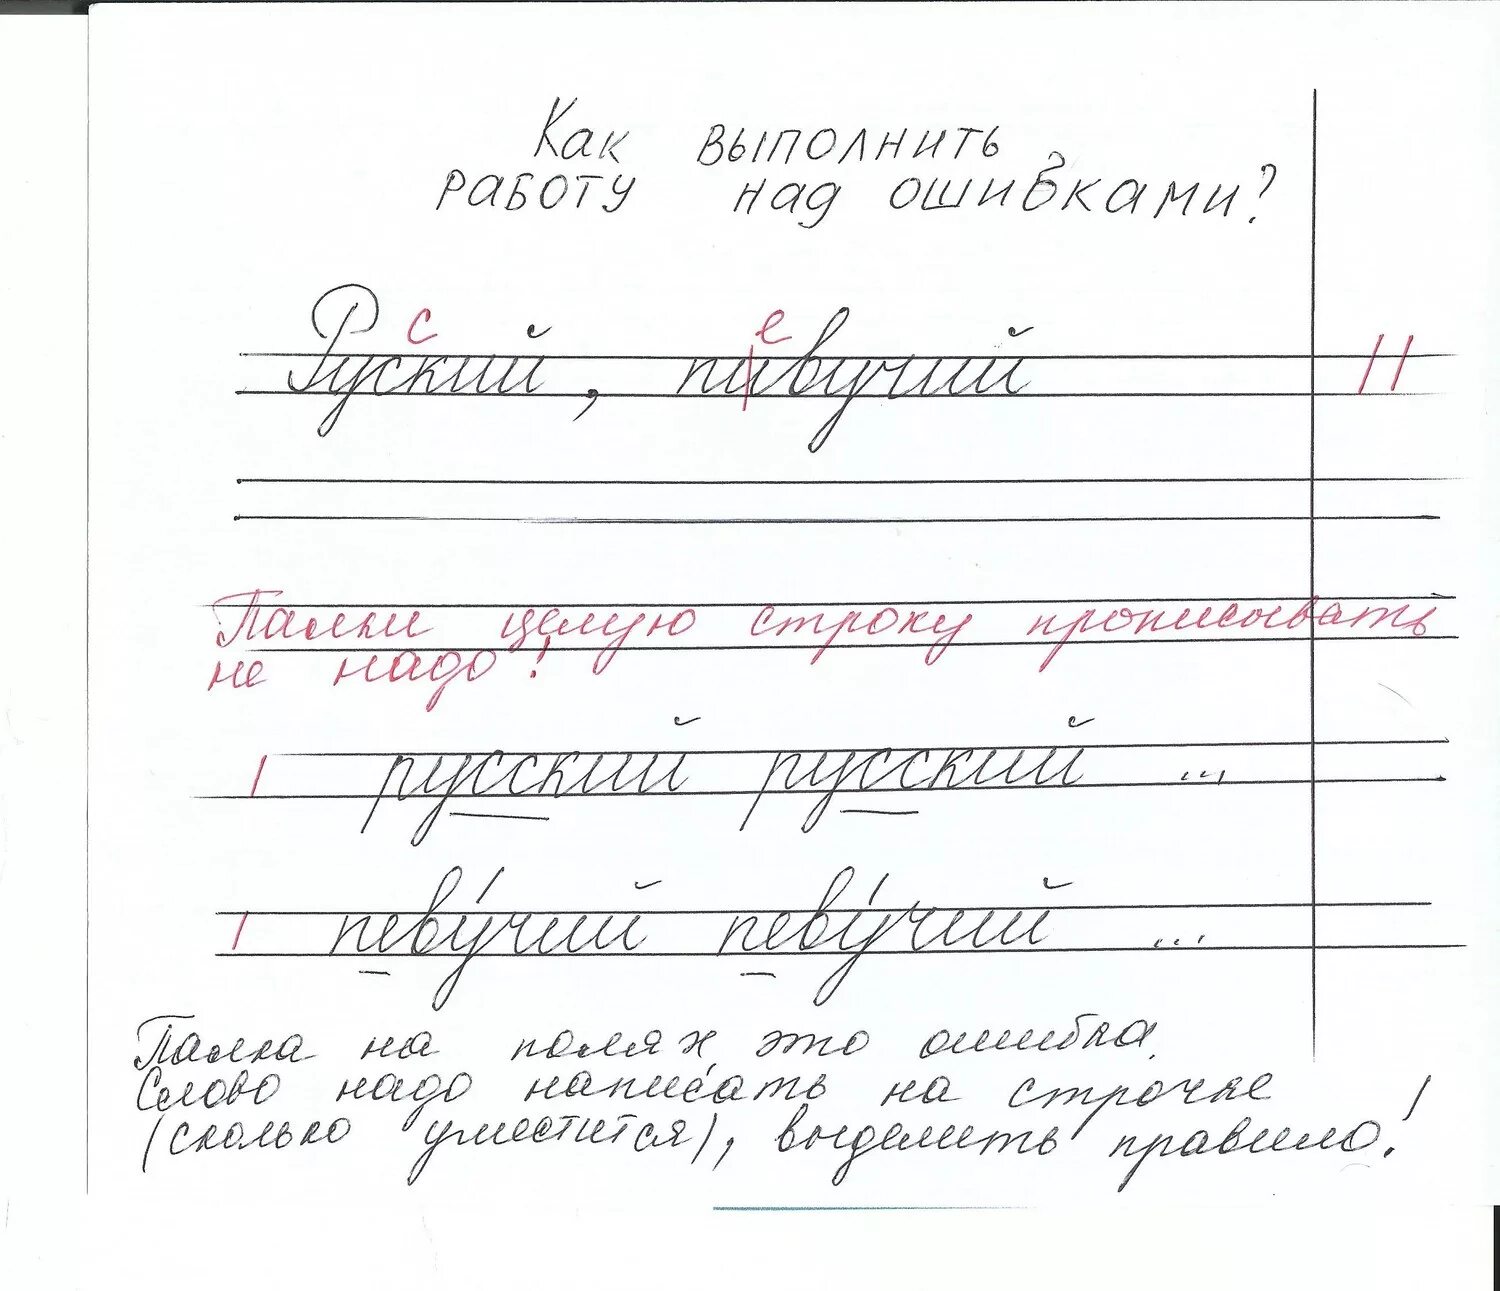 Как выполнить
работу над ошибками?
с е
Руский, пивучий
Палки целую строку прописывать
не надо!
русский русский ...
певу́чий певу́чий ...
Палка на полях это ошибка.
Слово надо написать на строчке
(сколько уместится), выделить правило!